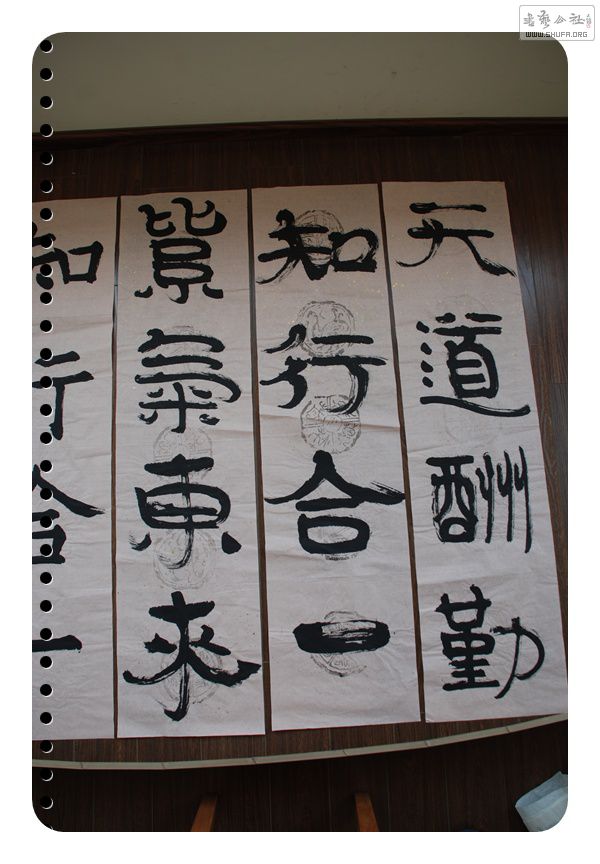 天道酬勤
知行合一
紫氣東來
知行合一
書藝公社
WWW.SHUFA.ORG